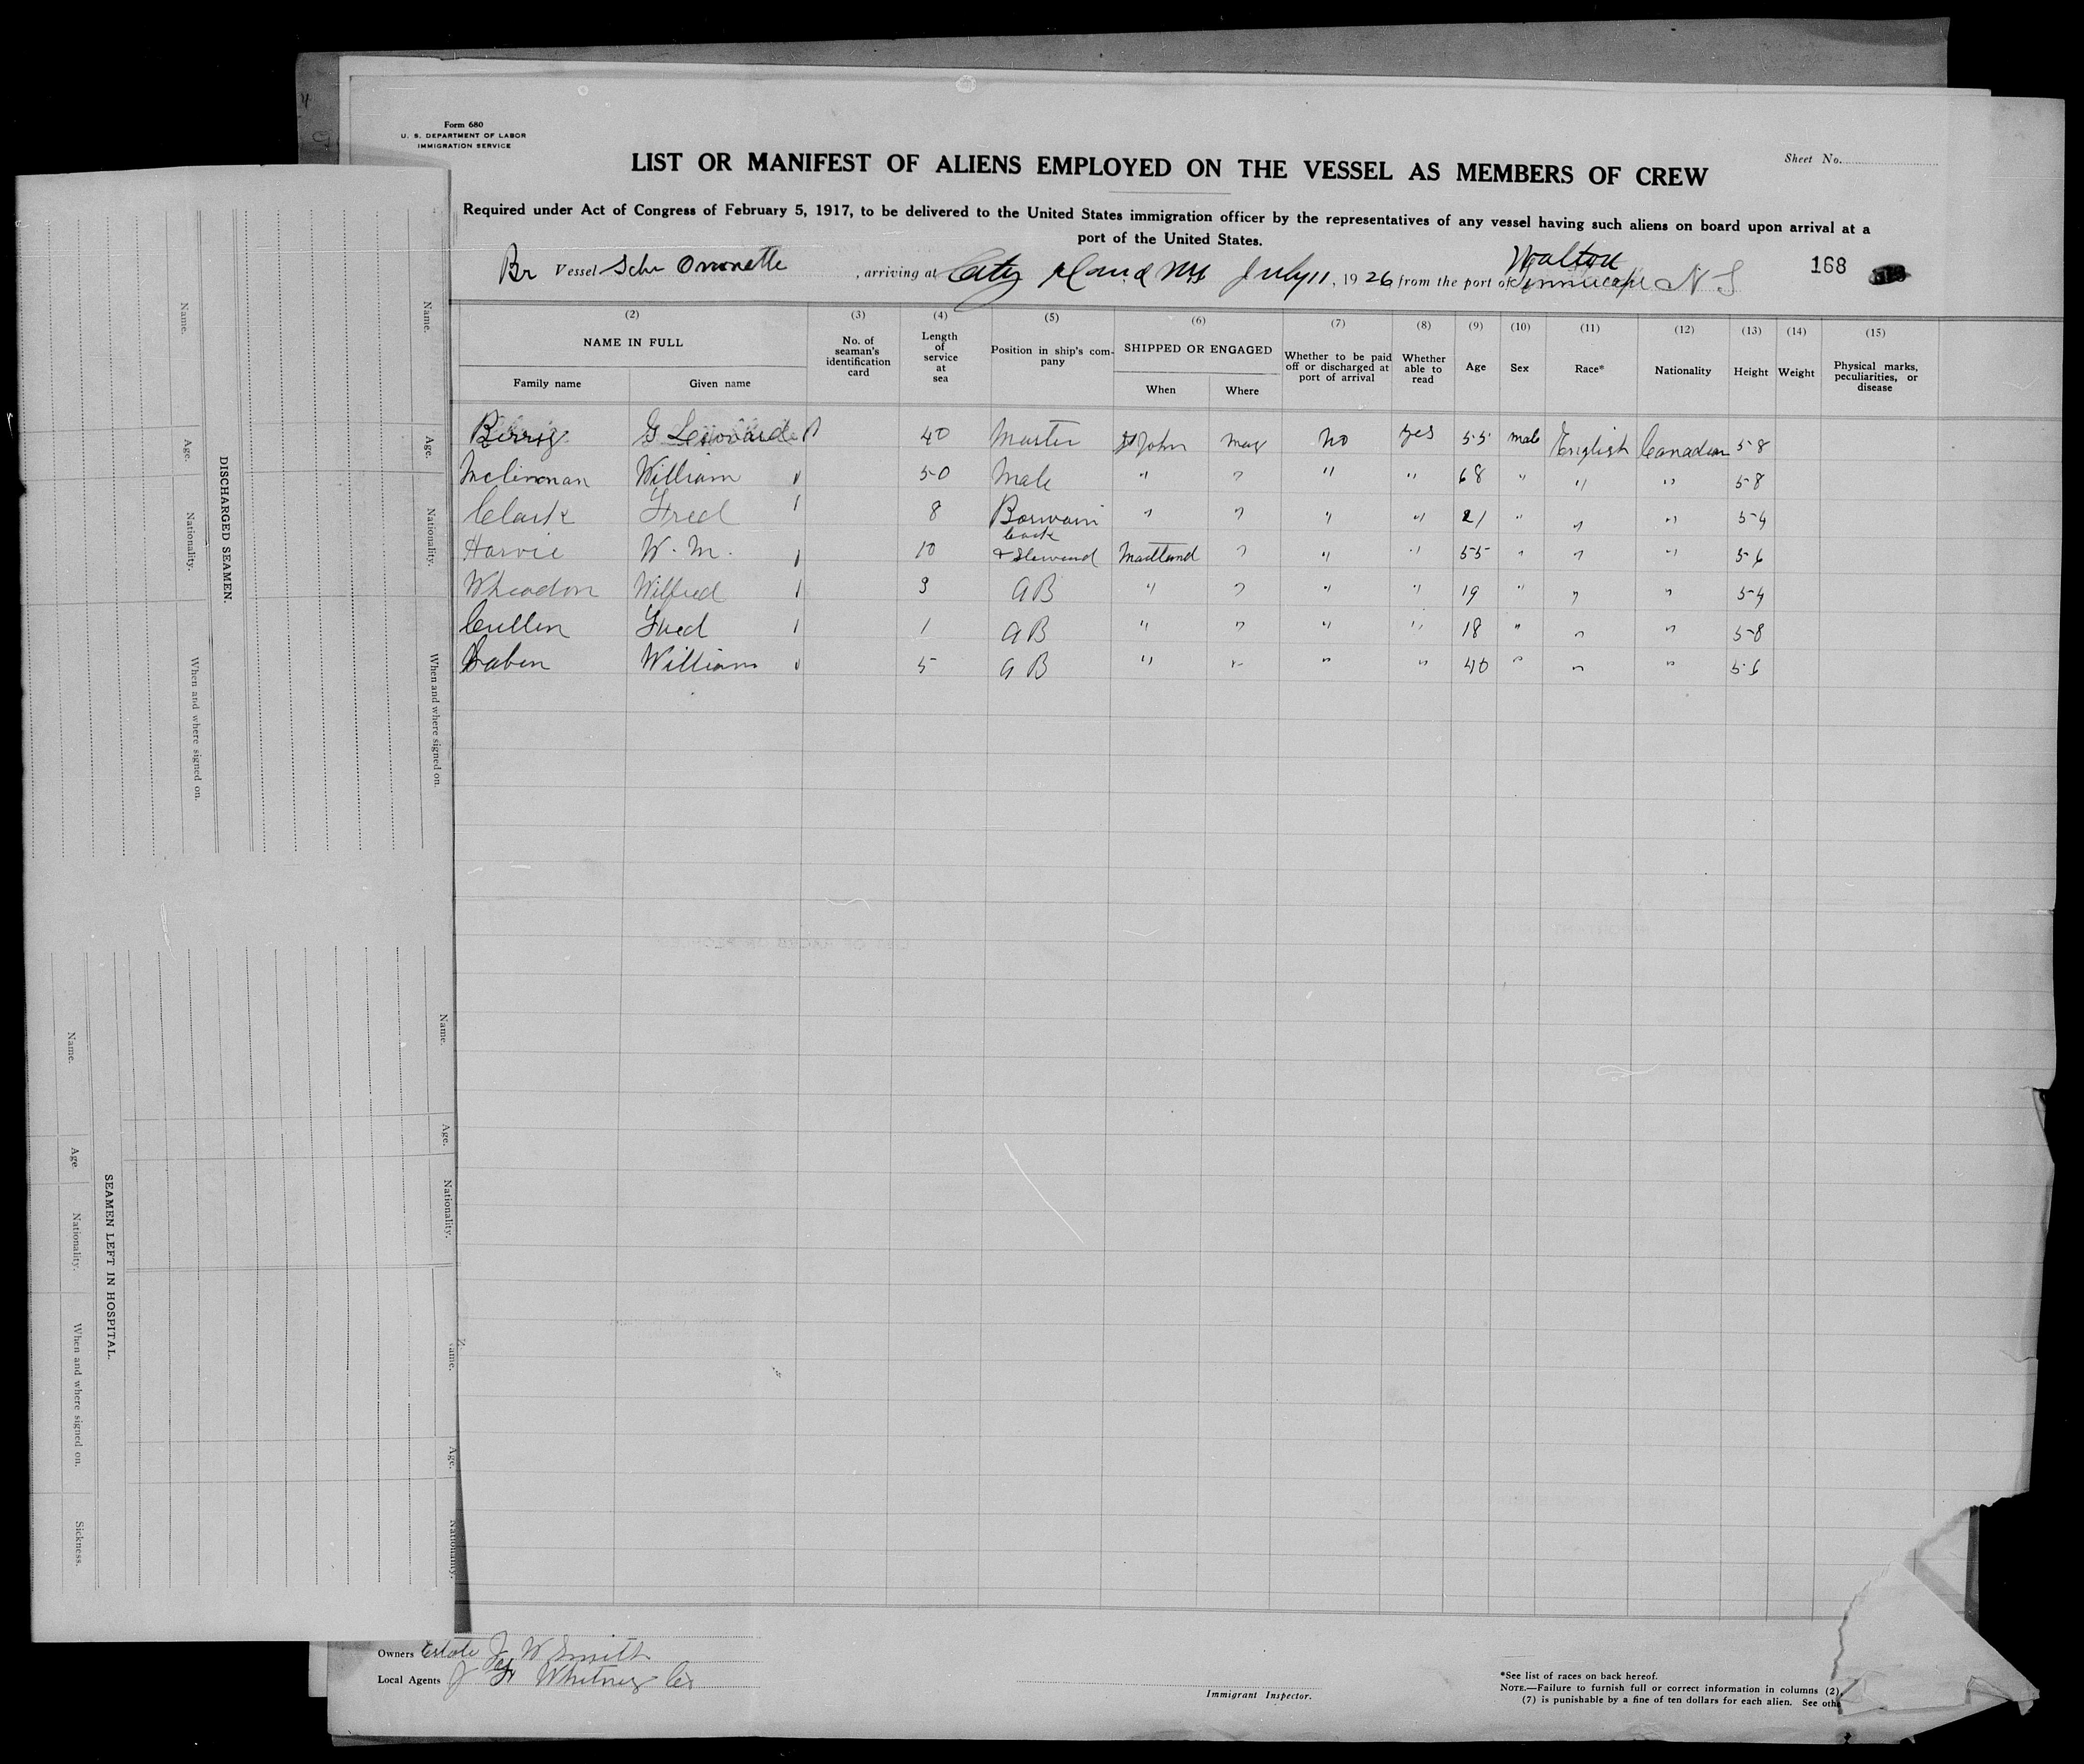 Form 680
U. S. DEPARTMENT OF LABOR
IMMIGRATION SERVICE
Sheet No.
LIST OR MANIFEST OF ALIENS EMPLOYED ON THE VESSEL AS MEMBERS OF CREW
Required under Act of Congress of February 5, 1917, to be delivered to the United States immigration officer by the representatives of any vessel having such aliens on board upon arrival at a
port of the United States.
Walton
Br Vessel Schr , arriving at City Island NY July 11, 1926 from the port of N S 168
(2) (3) (4) (5) (6) (7) (8) (9) (10) (11) (12) (13) (14) (15)
NAME IN FULL No. of seaman's identification card Length of service at sea Position in ship's company SHIPPED OR ENGAGED Whether to be paid off or discharged at port of arrival Whether able to read Age Sex Race* Nationality Height Weight Physical marks, peculiarities, or disease
Family name Given name When Where
G 40 Master St John May No Yes 55 male English Canadian 5-8
William 50 Mate " " " " 68 " " " 5-8
Clark Fred 8 " " " " 21 " " " 5-4
Cook
Harvie W. M. 10 & Steward Maitland " " " 55 " " " 5-6
Wheadon Wilfred 3 AB " " " " 19 " " " 5-4
Cullen Fred 1 AB " " " " 18 " " " 5-8
William 5 AB " " " " 40 " " " 5-6
Name. Age. Nationality. When and where signed on.
DISCHARGED SEAMEN.
Name. Age. Nationality. When and where signed on.
Name. Age. Nationality.
SEAMEN LEFT IN HOSPITAL.
Name. Age. Nationality. When and where signed on. Sickness.
ame. Age. Nationality.
Owners Estate J W Smith
Local Agents J F Whitney Co
Immigrant Inspector.
*See list of races on back hereof.
NOTE.—Failure to furnish full or correct information in columns (2),
(7) is punishable by a fine of ten dollars for each alien. See oth